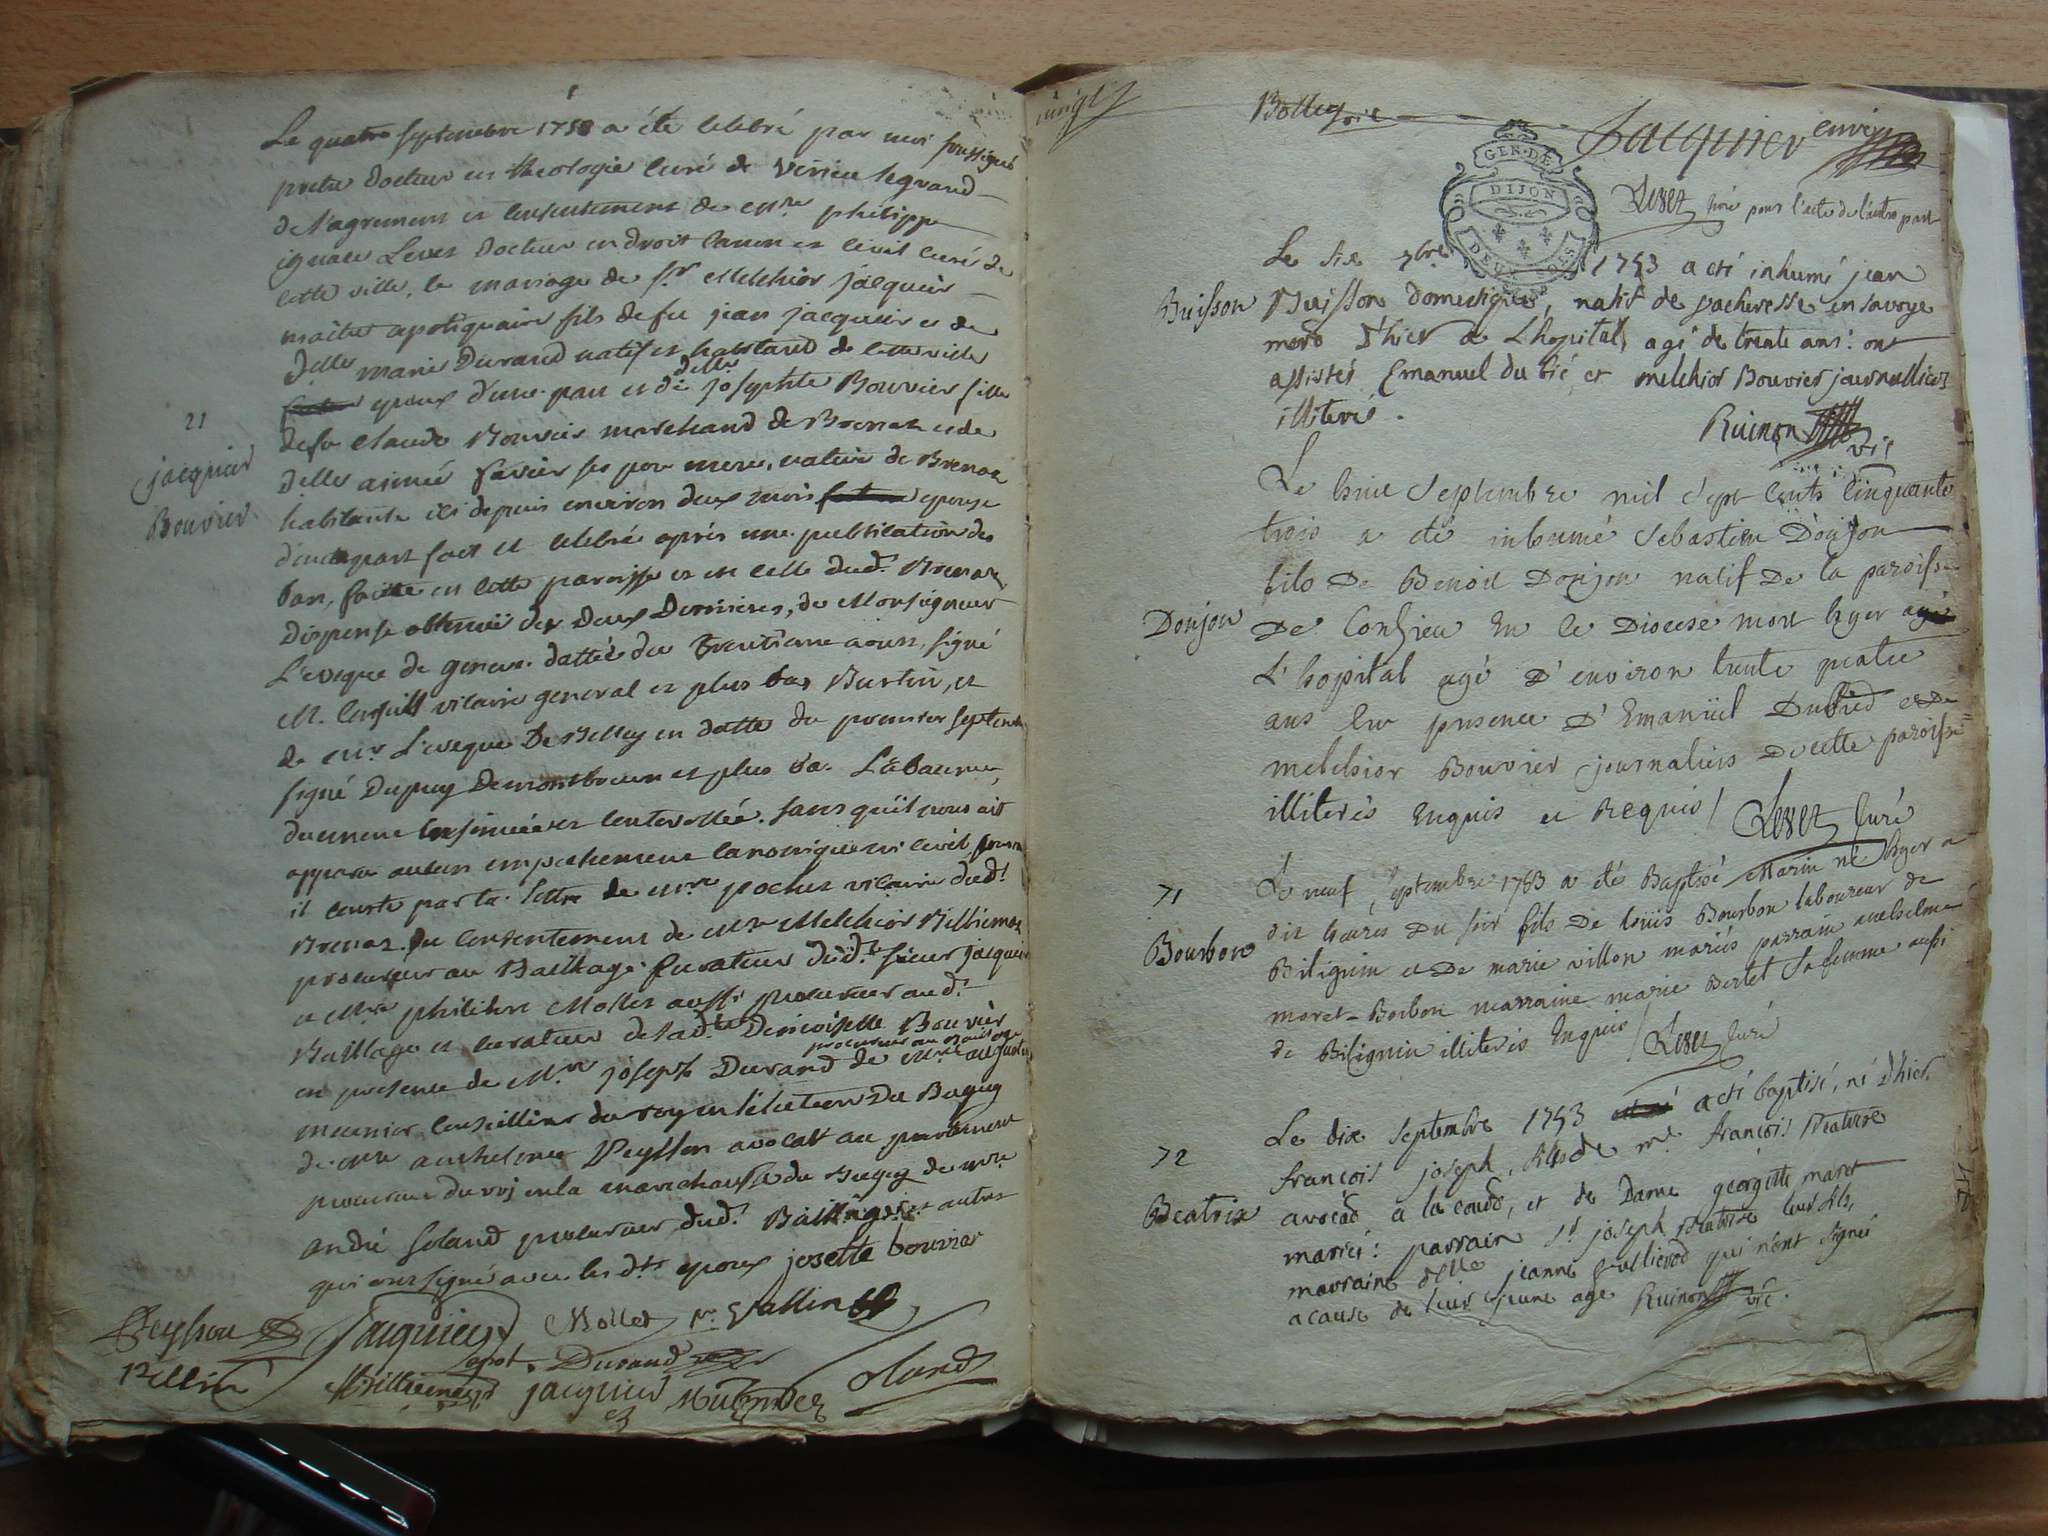 Le quatre septembre 1753 a été celebré par moi soussigné
pretre docteur en theologie curé de virieu legrand
de l'agrement et consentement de mre philippe
ignace Levet docteur en droit canon et civil curé de
cette ville, le mariage de sr. Melchior jacquier
maitre apotiquaire fils de feu jean jacquier et de
delle marie Durand natif et habitant de cette ville
epoux d'une part et de delle josephte Bouvier fille
21
defu claude Bouvier marchand de Brenaz et de
jacquier
delle aimée favier ses pere mere, native de Brenaz
Bouvier
habitante ici depuis environ deux mois epouse
d'autre part fait et celebré aprés une publication des
ban, faitte en cette paroisse et en celle dud. Brenaz
dispense obtenuë des deux dernieres, de Monseigneur
L'eveque de geneve dattée du trentieme aoust, signé
M. vicaire general et plus bas Bustin, et
de mr. L'eveque De Belley en datte du premier septembre
signé Dupuy Demontbrun et plus bas Labaume,
duement insinuées et controllée. sans quil nous ait
apparu aucun empechement canonique ni civil
il conste par la lettre de mre pochet vicaire dud.
Brenaz. du consentement de mre Melchior Billiemaz
procureur au Bailliage curateur dud. sieur jacquier
et mre philibert Mollet aussi procureur aud.
Bailliage et curateur de lad. Demoiselle Bouvier
procureur au Bailliage
en presence de Mre joseph Durand de mre
meunier conseiller du roy en l'election du Bugey
de mre anthelme Peysson avocat au parlement
procureur du roi en la marechaussée du Bugey de mre
andré Goland procureur dud. Bailliage et autres
qui ont signé avec les dts epoux josette bouvier
Peysson Jacquier Mollet Vallin
Billiemaz apot. Durand
jacquier Meunier Goland
Bolley vic Jacquier
GEN. DE
DIJON
DEUX SOLS
Levet curé pour l'acte de l'autre part
Le six 7bre 1753 a eté inhumé jean
Buisson
Buisson domestique, natif de pacheresse en savoye
mort d'hier a L'hopital, agé de trente ans: ont
assistés Emanuel du bié et melchior Bouvier journalliers
illiterés.
Ruinon vic
Le huit Septembre mil sept cents cinquante
trois a eté inhumé Sebastien Donjon
fils De Benoit Donjon natif De la paroisse
Donjon
De Conzieu En ce Diocese mort hyer
L'hopital agé D'environ trente quatre
ans En presence D'Emaniiel Dubied et De
melchior Bouvier journaliers De cette paroisse
illiterés Enquis et Requis / Levet Curé
71
Le neuf Septembre 1753 a eté Baptisé Marin né hyer a
Bourbon
dix heures Du soir fils De louis Bourbon laboureur de
Bilignin et De marie villon mariés parrain anthelme
moret-Borbon marraine marie Bertet Sa femme aussi
de Bilignin illiterés Enquis / Levet Curé
72
Le dix septembre 1753 a eté baptisé, né d'hier
Beatrix
francois joseph, fils de mre francois Beatrix
avocad a la cour, et de Dame georgette maret
mariés: parrain sr joseph Beatrix leur fils,
marraine delle jeanne qui n'ont signés
a cause de leur jeune age Ruinon vic.